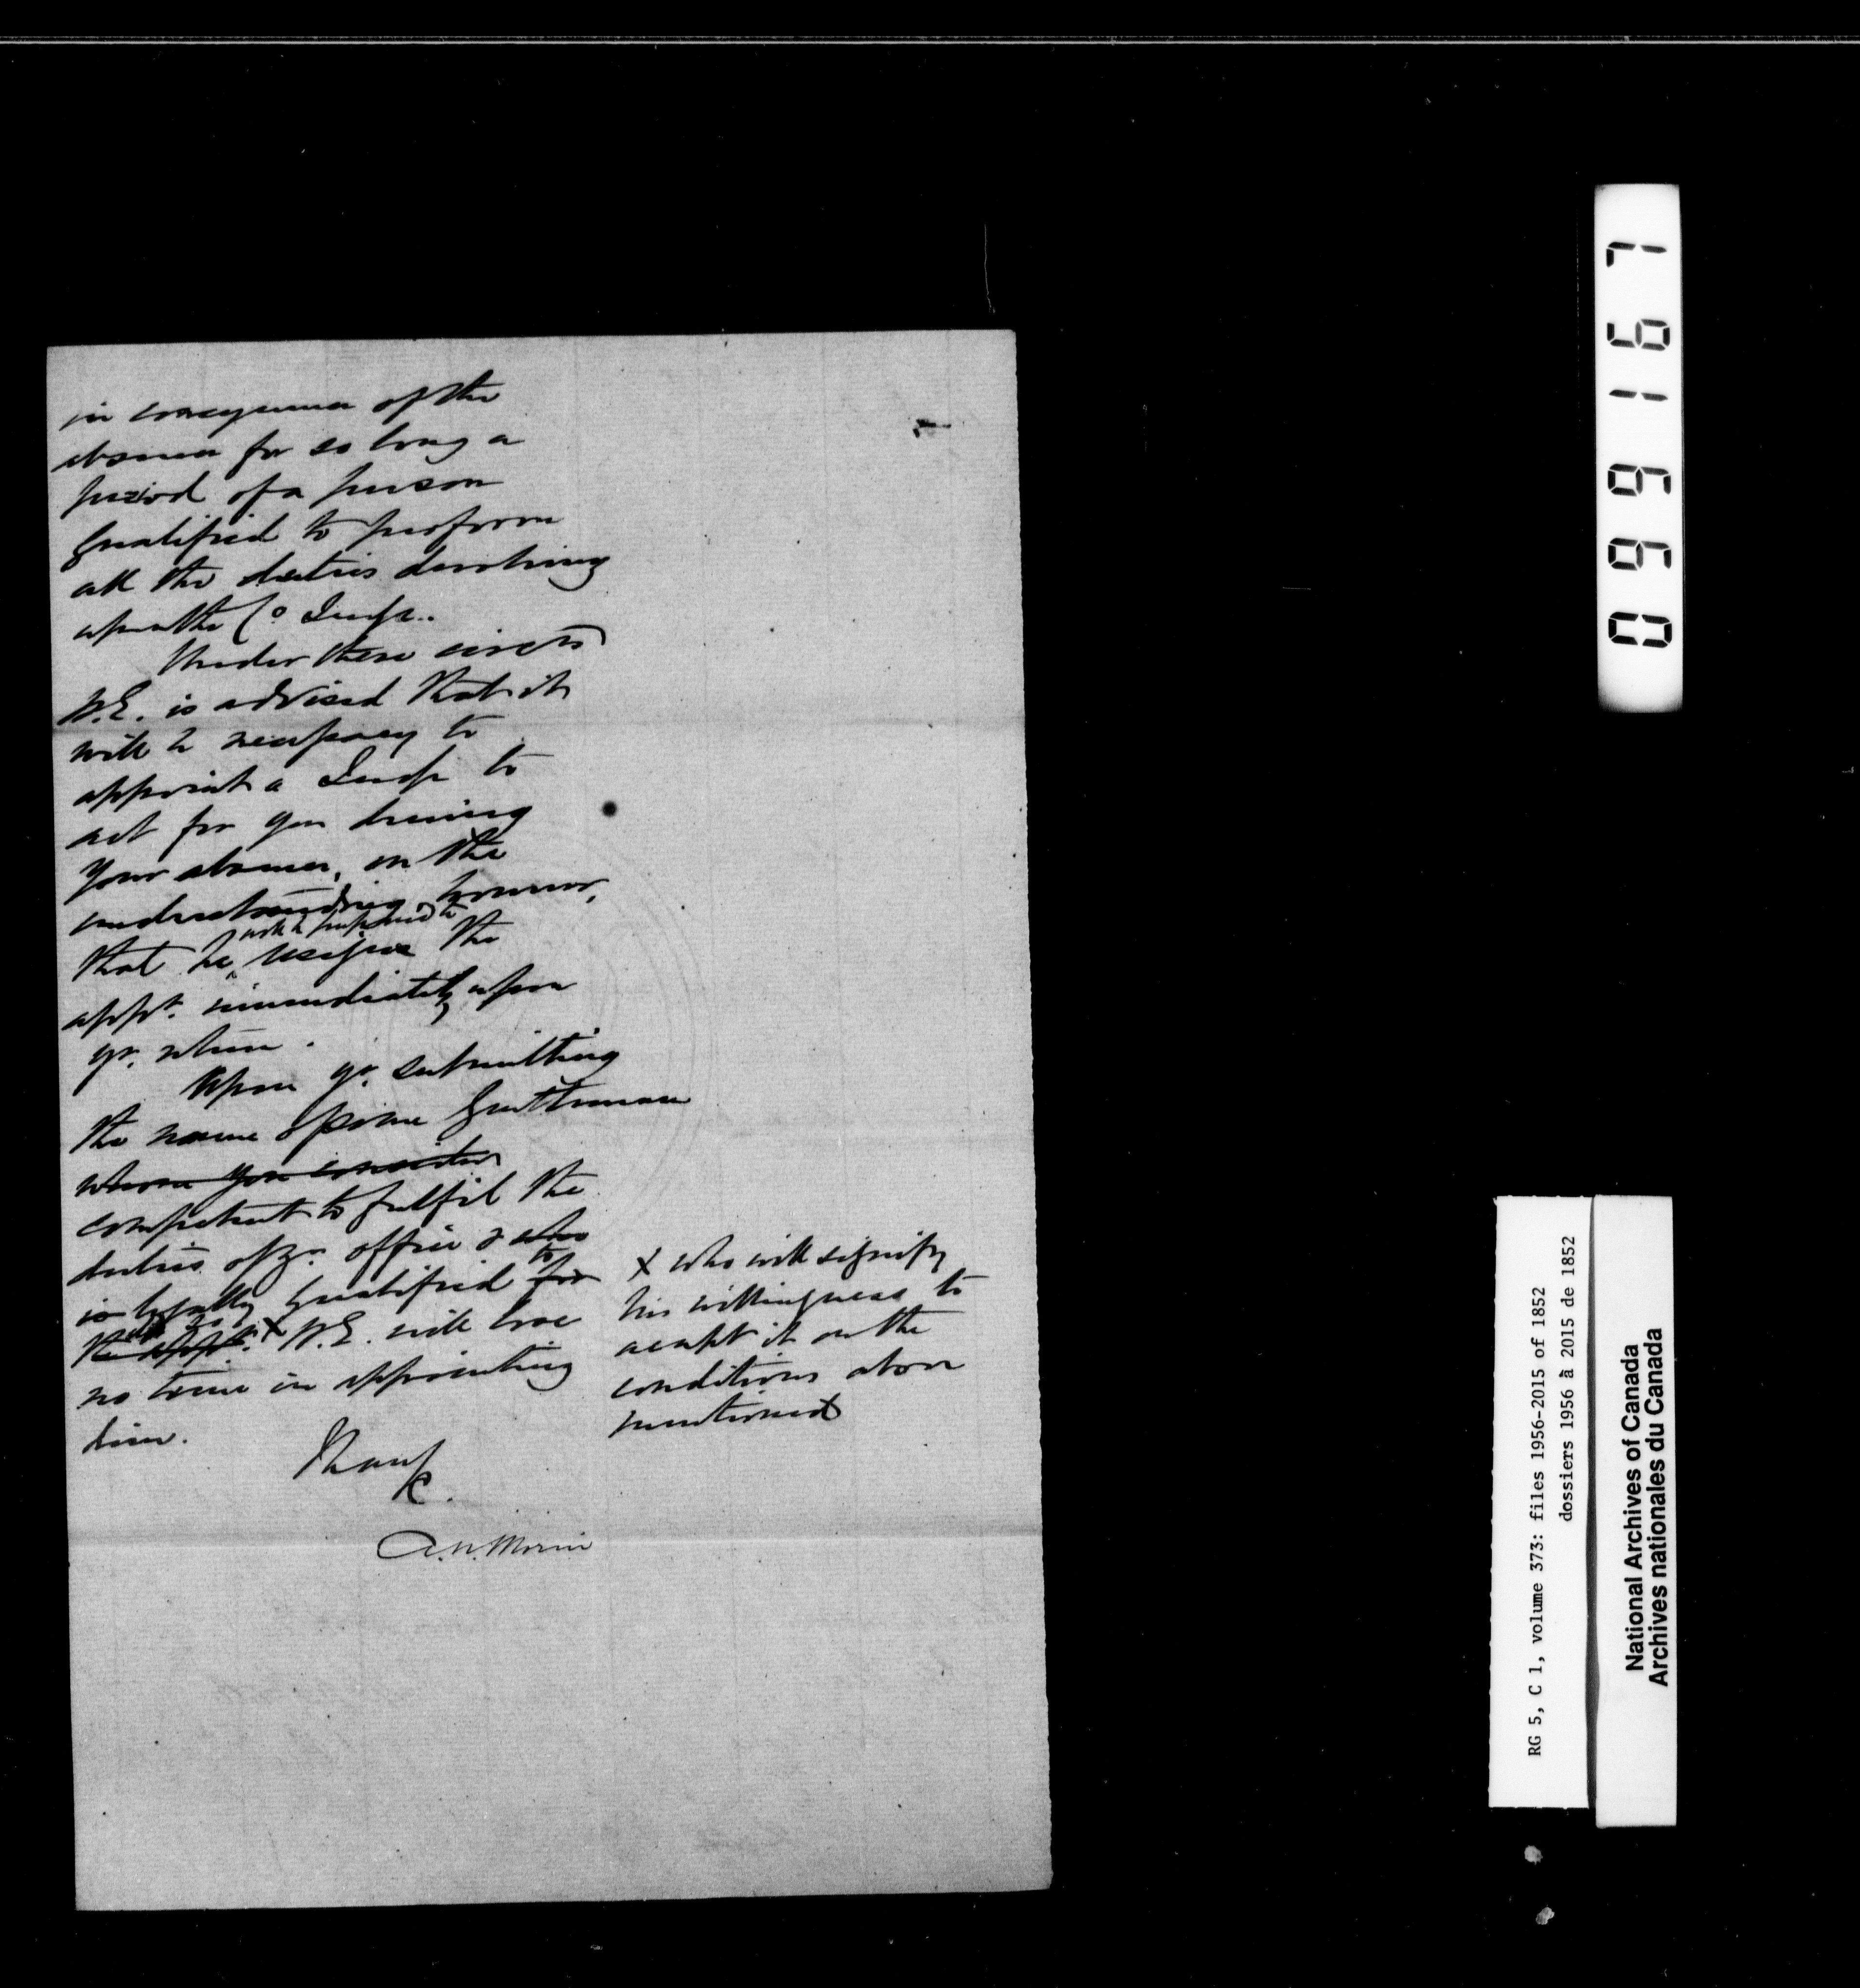 in consequence of the
absence for so long a
period of a person
qualified to perform
all the duties devolving
upon the Co. Judge.
Under these circts
H.E. is advised that it
will be necessary to
appoint a Judge to
act for you during
your absence, on the
understanding, however,
that he will be prepared to resign the
appt. immediately upon
yr. return.
Upon yr. submitting
the name of some Gentleman
whom you consider
competent to fulfil the
duties of yr. office & who
is legally qualified to for
do so the appt. X H.E. will lose
no time in appointing
him.
X who will signify
his willingness to
accept it on the
conditions above
mentioned
I have
&c.
A.N. Morin
099167
RG 5, C 1, volume 373: files 1956-2015 of 1852
dossiers 1956 à 2015 de 1852
National Archives of Canada
Archives nationales du Canada